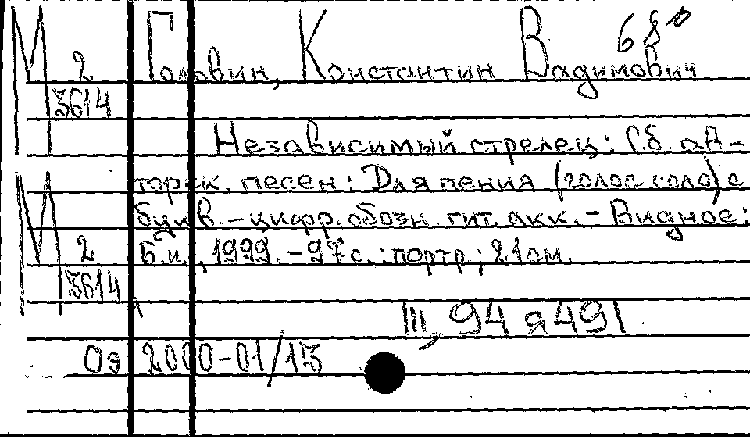 680
М 2 Головин, Константин Вадимович
3614
Независимый стрелец: Сб. ав-
торск. песен: Для пения (голос соло) с
букв.-цифр. обозн. гит. акк. - Видное:
М 2 Б.и., 1999. - 97 с.: портр.; 21 см.
3614
Ш, 94 я 491
Оэ 2000-01/13